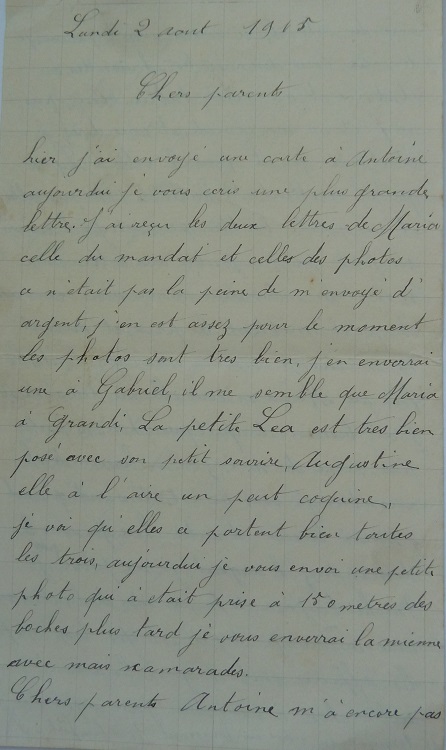 Lundi 2 aout 1915
Chers parents
hier j'ai envoyé une carte à Antoine
aujourdui je vous ecris une plus grande
lettre. J'ai reçu les deux lettres de Maria
celle du mandat et celles des photos
ce n'etait pas la peine de m'envoyé d'
argent, j'en est assez pour le moment
les photos sont tres bien, j'en enverrai
une à Gabriel, il me semble que Maria
à grandi, La petite Lea est tres bien
posé avec son petit sourire, Augustine
elle à l'aire un peut coquine,
je voi qu'elles ce portent bien toutes
les trois, aujourdui je vous envoi une petite
photo qui à etait prise à 150 metres des
boches plus tard je vous enverrai la mienne
avec mais kamarades.
Chers parents Antoine m'à encore pas